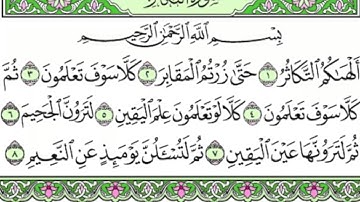 سورة التكاثر
بِسْمِ ٱللَّهِ ٱلرَّحْمَٰنِ ٱلرَّحِيمِ
أَلْهَىٰكُمُ ٱلتَّكَاثُرُ ١ حَتَّىٰ زُرْتُمُ ٱلْمَقَابِرَ ٢ كَلَّا سَوْفَ تَعْلَمُونَ ٣ ثُمَّ
كَلَّا سَوْفَ تَعْلَمُونَ ٤ كَلَّا لَوْ تَعْلَمُونَ عِلْمَ ٱلْيَقِينِ ٥ لَتَرَوُنَّ ٱلْجَحِيمَ ٦
ثُمَّ لَتَرَوُنَّهَا عَيْنَ ٱلْيَقِينِ ٧ ثُمَّ لَتُسْـَٔلُنَّ يَوْمَئِذٍ عَنِ ٱلنَّعِيمِ ٨